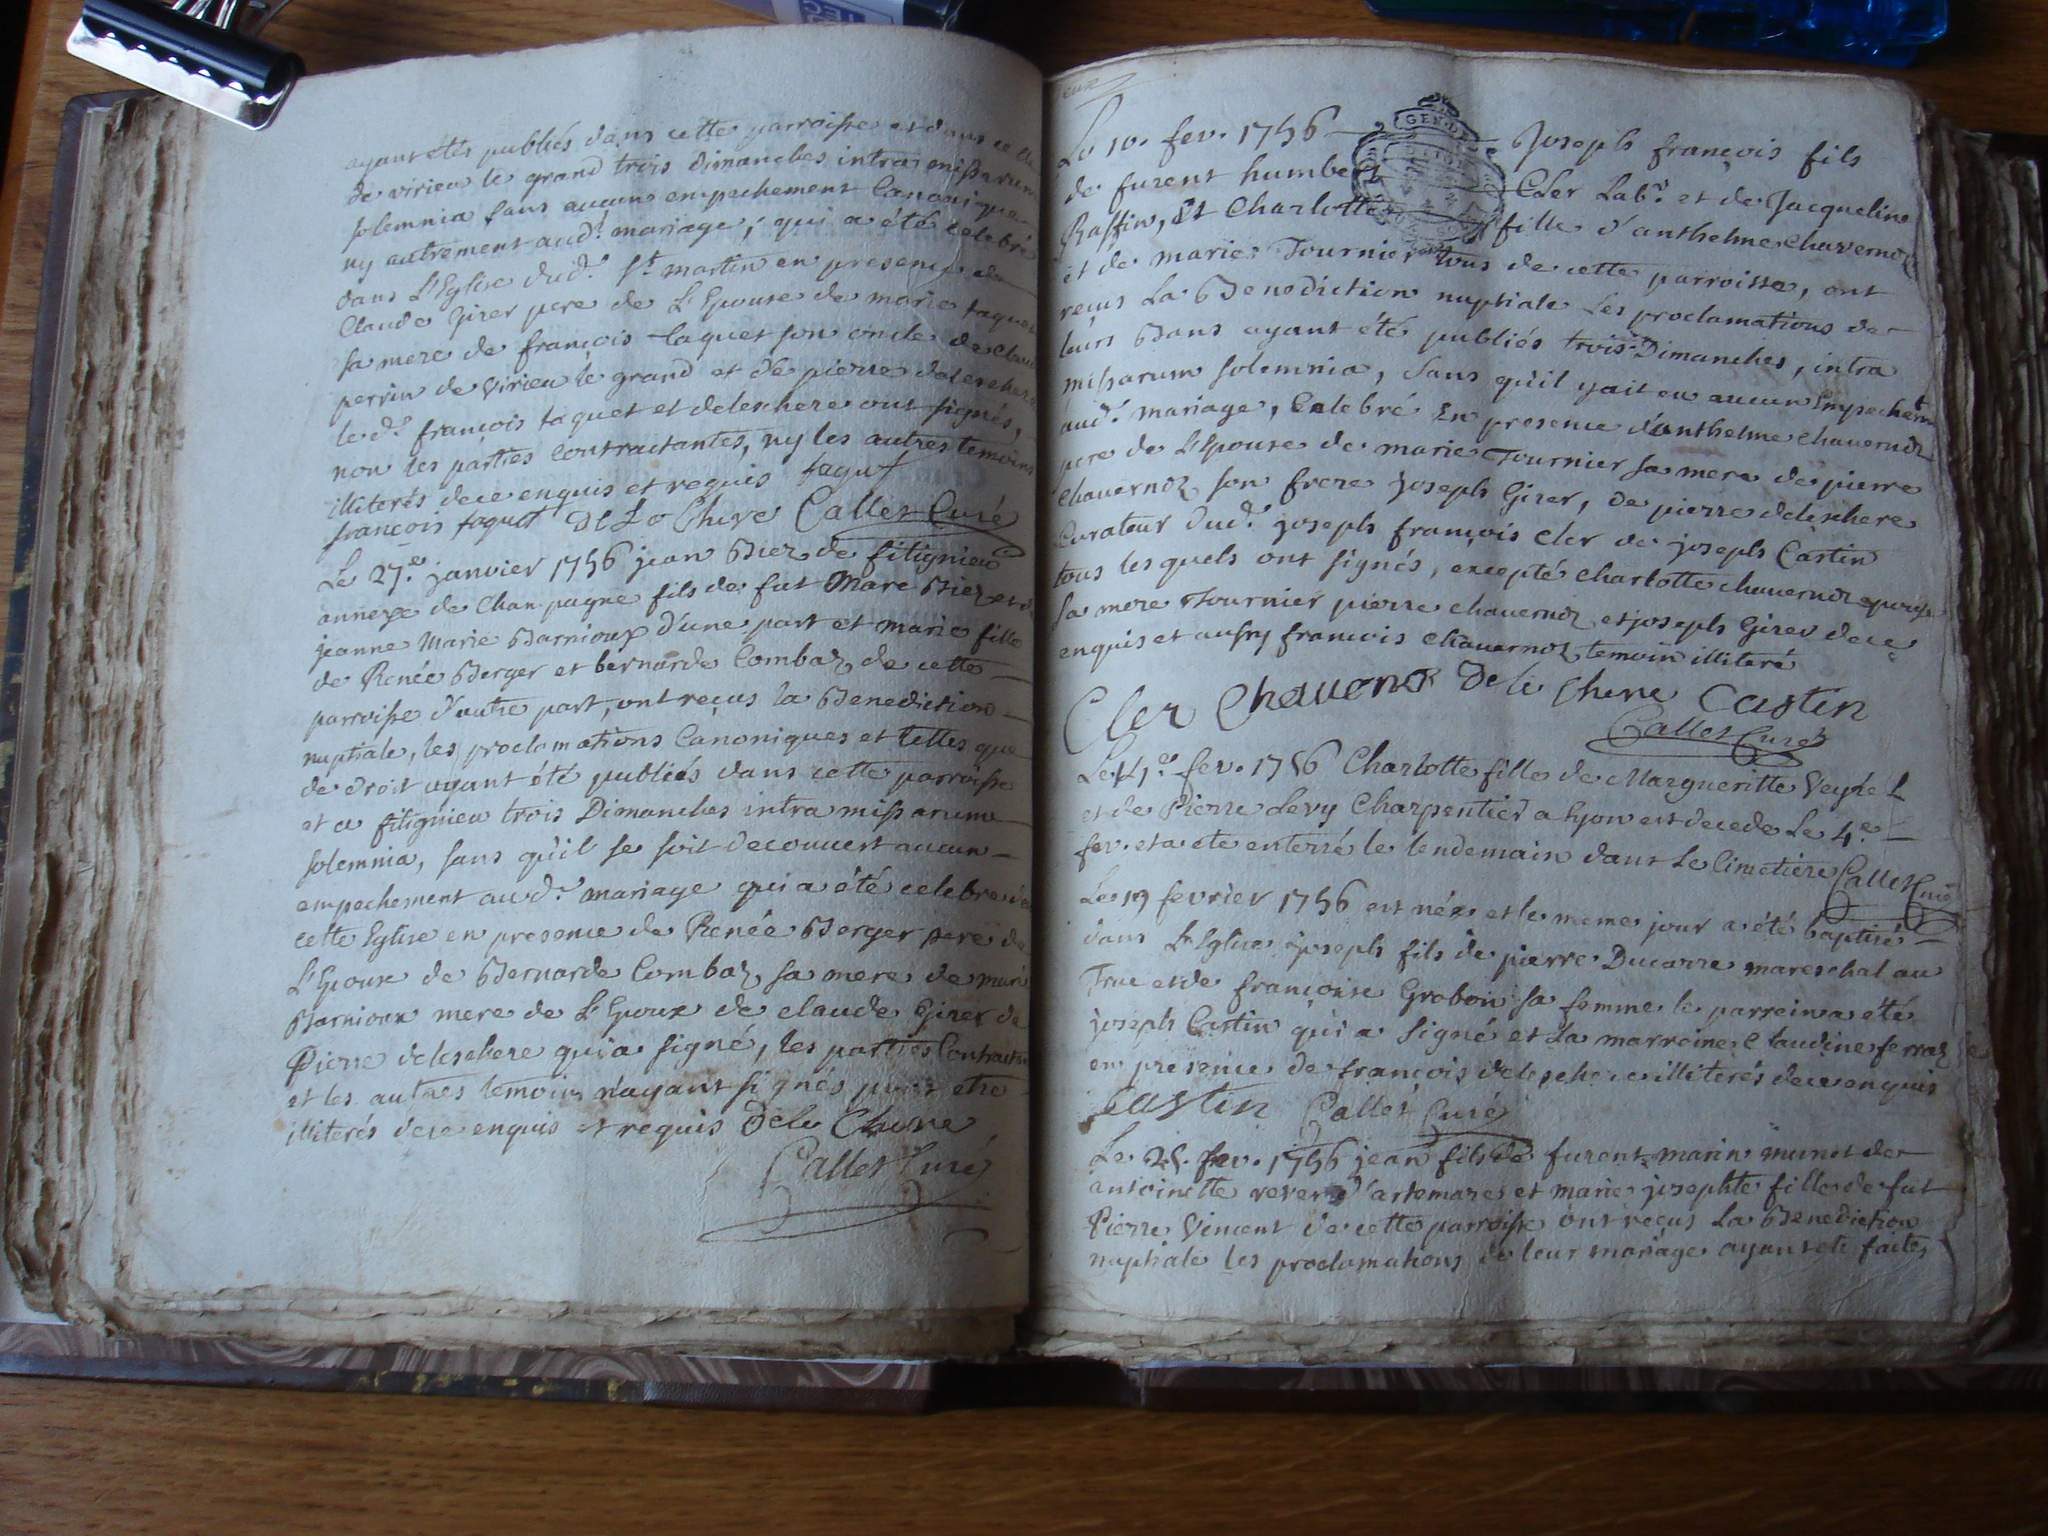 ayant etés publiés dans cette parroisse et dans celle
de virieu le grand trois Dimanches intra missarum
solemnia sans aucun empechement Canonique
ny autrement aud.t mariage, qui a été celebré
dans L'Eglise dud.t St martin en presence de
Claude Girer pere de L'Epouse de marie taquet
sa mere de françois taquet son oncle de Claude
perrin de Virieu le grand et de pierre delechere
le d.t françois taquet et deleschere ont signés,
non les parties contractantes, ny les autres temoins
illiterés de ce enquis et requis taqut
françois taqut De Lo Chere Callet Curé
Le 27.e janvier 1756 jean Biez de fitignieu
annexe de Champagne fils de fut Marc Biez et de
jeanne Marie Barnioux d'une part et marie fille
de Renée Berger et bernarde Combaz de cette
parroisse d'autre part, ont reçus la Benediction
nuptiale, les proclamations Canoniques et telles que
de droit ayant été publiées dans cette parroisse
et a fitignieu trois Dimanches intra missarum
solemnia, sans qu'il se soit decouvert aucun
empechement aud.t mariage qui a été celebré dans
cette Eglise en presence de Renée Berger pere de
L'Epoux de Bernarde Combaz sa mere de marie
Barnioux mere de L'Epoux de claude Girer de
Pierre deleschere qui a signé, les parties Contractes
et les autres temoins n'ayant signés pour etre
illiterés de ce enquis et requis Dele Chere
Callet Curé
Le 10. fev. 1756 Joseph françois fils
de furent humbert Cler Lab.r et de Jacqueline
Raffin, Et Charlotte fille d'anthelme Chavernoz
et de marie Tournier tous de cette parroisse, ont
reçus La Benediction nuptiale Les proclamations de
leurs Bans ayant été publiés trois Dimanches, intra
missarum solemnia, sans qu'il y ait eu aucun Empechem.t
aud.t mariage, Celebré En presence d'anthelme chavernoz
pere de L'Epouse de marie Tournier sa mere de pierre
Chavernoz son frere joseph Girer, de pierre deleschere
Curateur dud.t joseph françois Cler de joseph Castin
tous les quels ont signés, excepté charlotte chavernoz epouse
sa mere Tournier pierre chavernoz et joseph Girer de ce
enquis et aussy francois chavernoz temoin illiteré
Cler Chavernoz De le Chere Castin
Callet Curé
Le fev. 1756 Charlotte fille de Margueritte Veyret
et de Pierre Levy Charpentier a Lyon est decede Le 4.e
fev. et a ete enterré le lendemain dans Le Cimetiere Callet Curé
Le 19 fevrier 1756 est né et le meme jour a été baptisé
dans L'Eglise joseph fils de pierre Ducarre mareschal au
Truc et de françoise Grobon sa femme le parrein a été
joseph Castin qui a signé et La marreine Claudine ferraz
en presence de françois deleschere illiterés de ce enquis
Castin Callet Curé
Le 25. fev. 1756 jean fils de furent marin munet de
antoinette d'artemare et marie josephte fille de fut
Pierre Vincent de cette parroisse ont reçus La Benediction
nuptiale les proclamations de leur mariage ayant eté faites